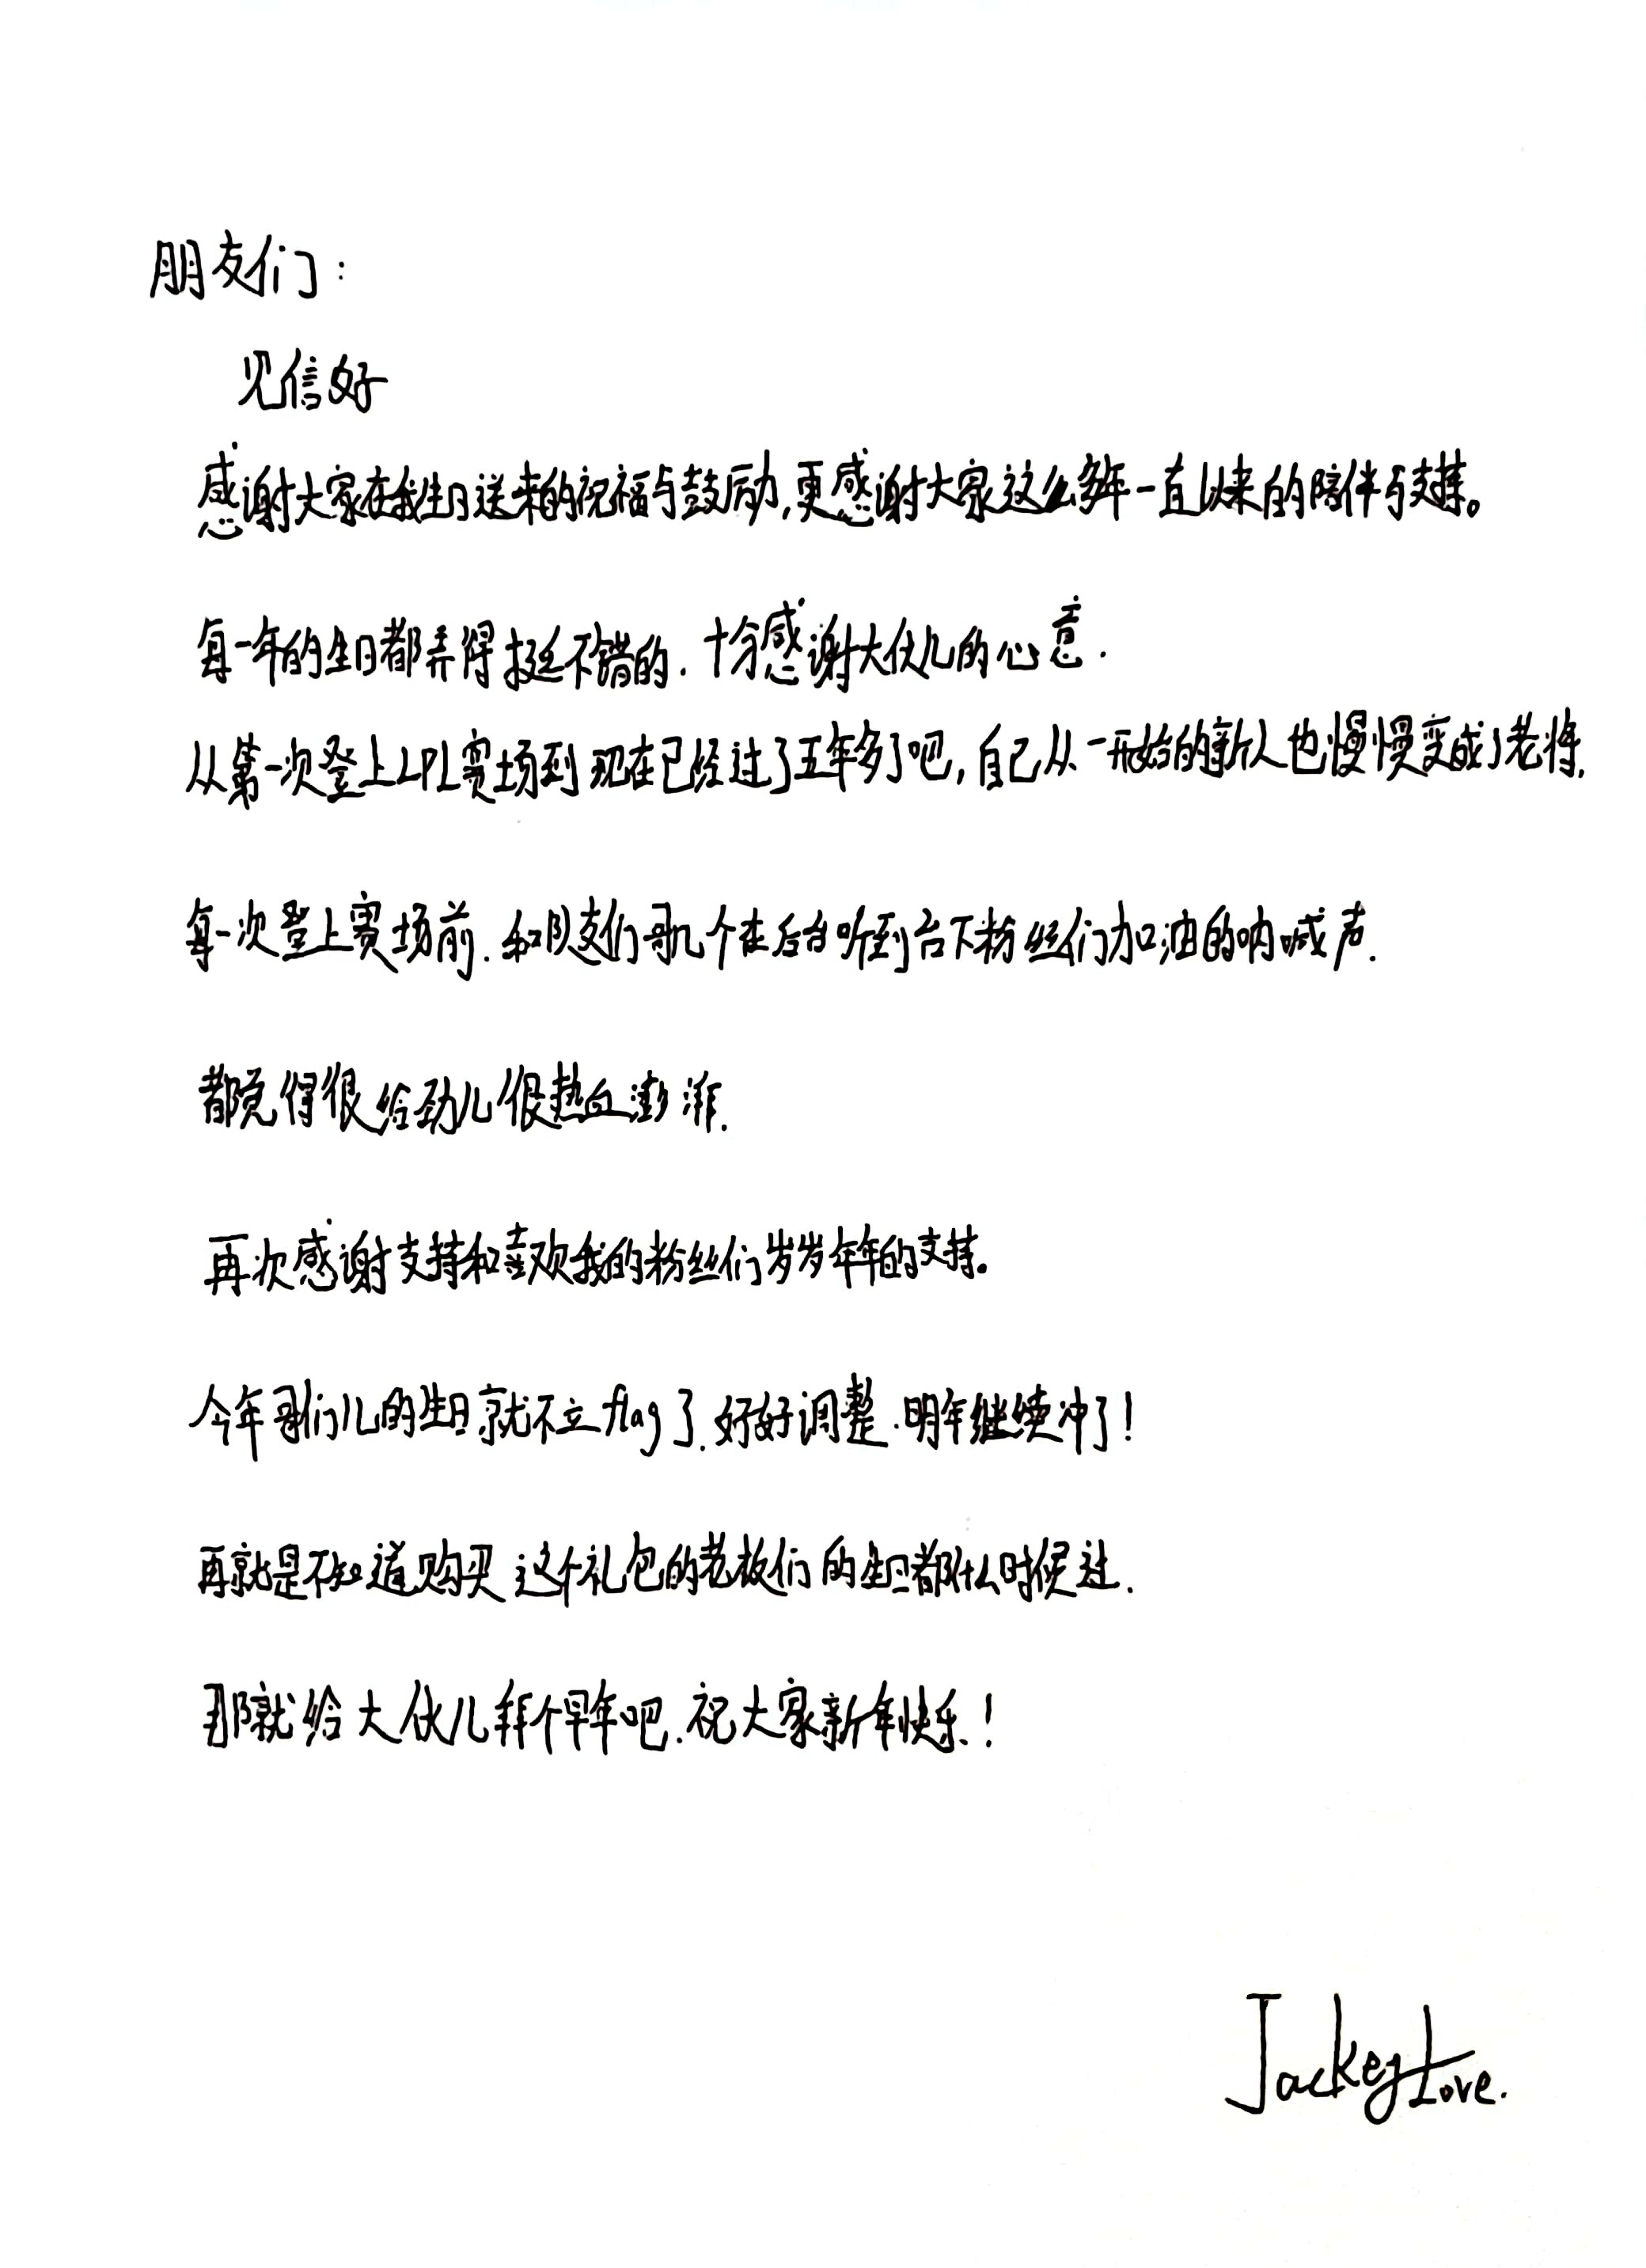 朋友们：
见信好
感谢大家在我生日送来的祝福与鼓励,更感谢大家这么多年一直以来的陪伴与支持。
每一年的生日都弄得挺不错的.十分感谢大伙儿的心意.
从第一次登上LPL赛场到现在已经过了五年多了吧,自己从一开始的新人也慢慢变成了老将,
每一次登上赛场前.和队友们哥几个在后台听到台下粉丝们加油的呐喊声.
都觉得很给劲儿很热血澎湃.
再次感谢支持和喜欢我的粉丝们岁岁年年的支持。
今年哥们儿的生日就不立flag了.好好调整.明年继续冲了!
再就是不知道购买这个礼包的老板们的生日都什么时候过.
那就给大伙儿拜个早年吧.祝大家新年快乐!
JackeyLove.